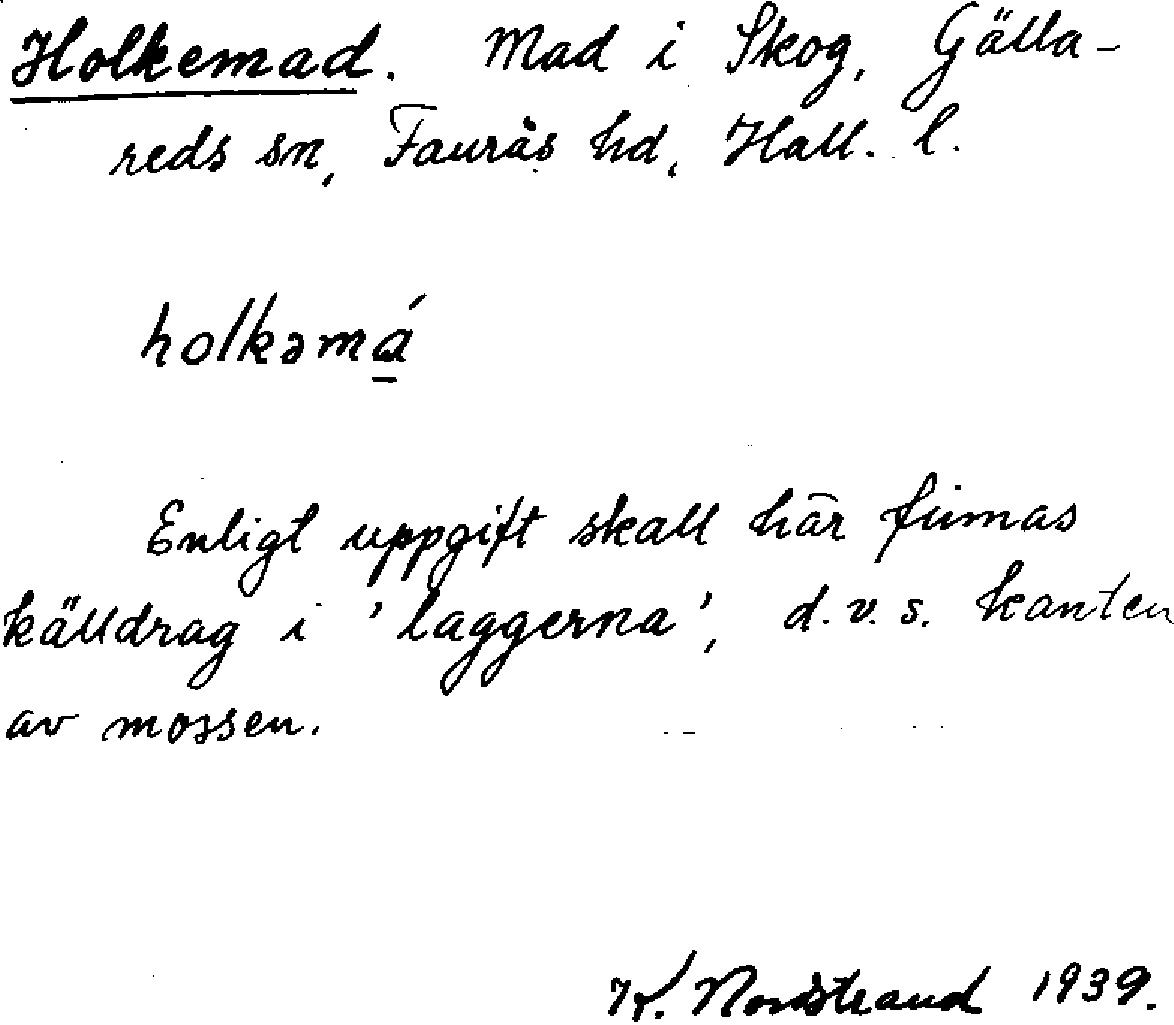 Holkemad. Mad i Skog, Gälla-
reds sn, Faurås hd, Hall. l.
holkəmá
Enligt uppgift skall här finnas
källdrag i 'laggerna', d.v.s. kanten
av mossen.
K. Nordstrand 1939.